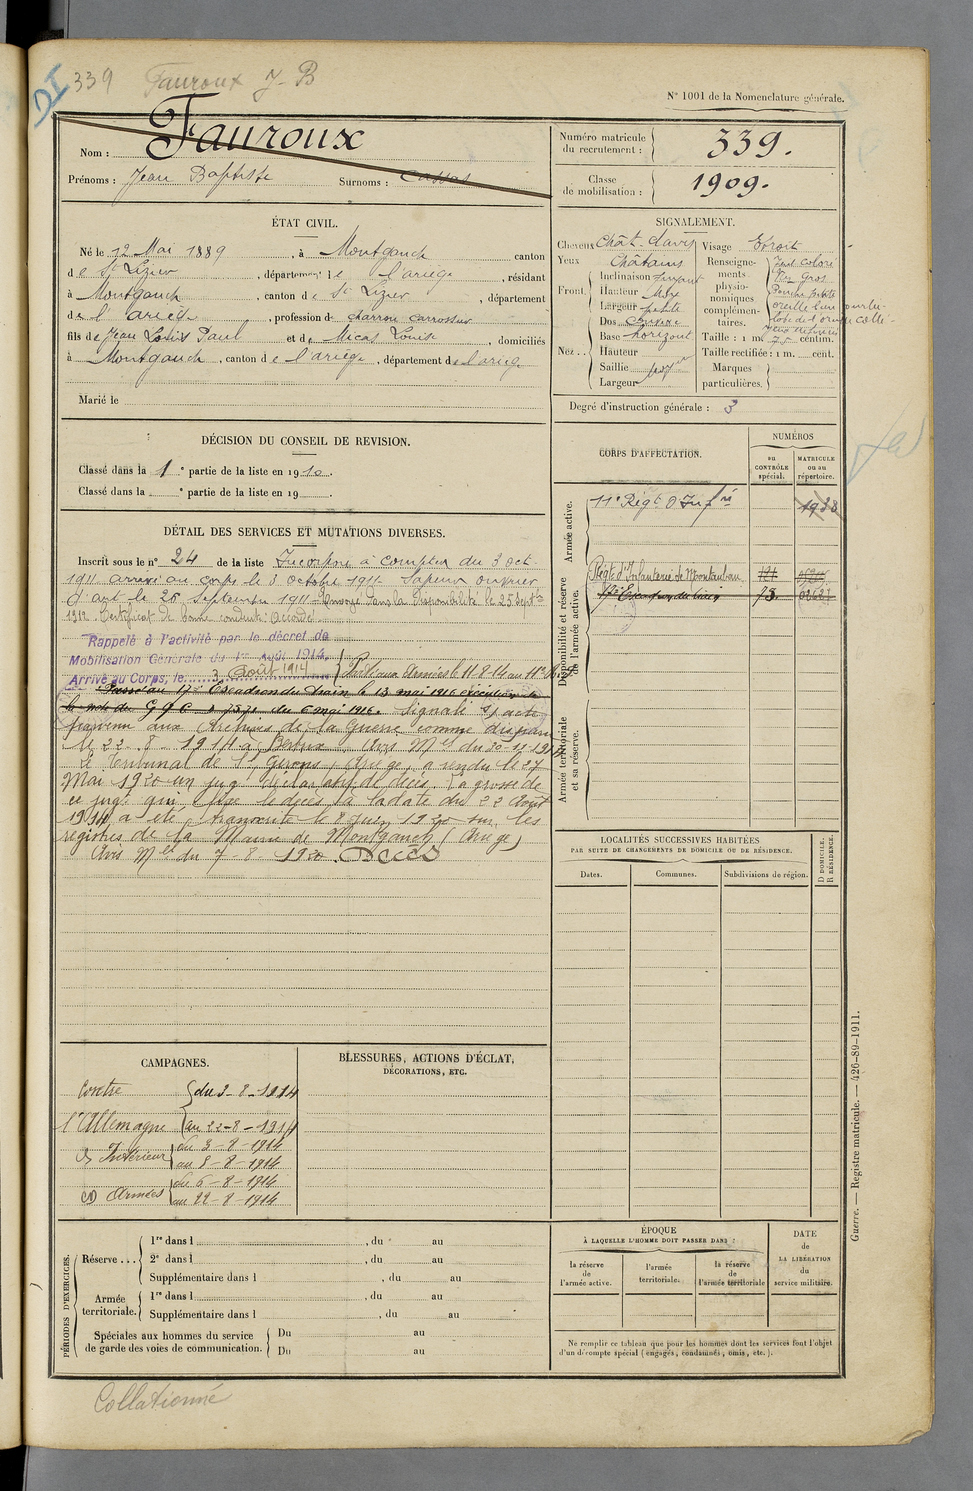 339 Fauroux J-B
N° 1001 de la Nomenclature générale.
Nom : Fauroux
Prénoms : Jean Baptiste Surnoms : Cassas
Numéro matricule du recrutement : 339.
Classe de mobilisation : 1909.
ÉTAT CIVIL.
Né le 12 Mai 1889, à Montgauch canton
de St Lizier, département de l'ariège, résidant
à Montgauch, canton de St Lizier, département
de l'ariège, profession de charron carrossier
fils de Jean Louis Paul et de Micas Louise, domiciliés
à Montgauch, canton de l'ariège, département de l'arieg
Marié le
SIGNALEMENT.
Cheveux Chât-clairs
Yeux Châtains
Front. Inclinaison fuyant
Hauteur
Largeur petite
Nez.. Dos
Base horizont
Hauteur
Saillie
Largeur
Visage Etroit
Renseignements physionomiques complémentaires.
Nez gros
Taille : 1 m. 75 centim.
Taille rectifiée : 1 m. cent.
Marques particulières.
Degré d'instruction générale : 3
DÉCISION DU CONSEIL DE REVISION.
Classé dans la 1e partie de la liste en 1910.
Classé dans la e partie de la liste en 19 .
CORPS D'AFFECTATION.
NUMÉROS
au CONTRÔLE spécial.
MATRICULE ou au répertoire.
Armée active.
11e Régt d'Infrie 1938
Disponibilité et réserve de l'armée active.
Régt d'Infanterie de Montauban 121
17e Escadron du train 73.
Armée territoriale et sa réserve.
DÉTAIL DES SERVICES ET MUTATIONS DIVERSES.
Inscrit sous le n° 24 de la liste Incorporé à compter du 3 oct.
1911 arrivé au corps le 3 octobre 1911 Sapeur ouvrier
d'art le 26 Septembre 1911 Envoyé dans la disponibilité le 25 Septbre
1912. Certificat de bonne conduite Accordé.
Rappelé à l'activité par le décret de
Mobilisation Générale du 1er Août 1914.
Arrivé au Corps, le 3 Août 1914 Parti aux Armées le 11-8-14 au 11e
Passé au 17e Escadron du train le 13 mai 1916 exécution de
la note du G Q G n° 7571 du 6 mai 1916. Signalé
parvenu aux Archives de la Guerre comme disparu
le 22-8-1914 à Bertrix. Avis Mel du 20-12-1914
Le Tribunal de St Girons, Ariège, a rendu le 27
Mai 1920 un jugt déclaratif de décès. La grosse de
ce jugt qui fixe le décès à la date du 22 Août
1914 a été transcrite le 8 juin 1920 sur les
registres de la Mairie de Montgauch (Ariège)
Avis Mel du 7-8-1920. Décès
LOCALITÉS SUCCESSIVES HABITÉES
PAR SUITE DE CHANGEMENTS DE DOMICILE OU DE RÉSIDENCE.
Dates. Communes. Subdivisions de région. D DOMICILE. R RÉSIDENCE.
CAMPAGNES.
Contre du 3-8-1914
l'Allemagne au 22-8-1914
Intérieur du 3-8-1914
au 8-8-1914
CD Armées du 6-8-1914
au 22-8-1914
BLESSURES, ACTIONS D'ÉCLAT,
DÉCORATIONS, ETC.
PÉRIODES D'EXERCICES.
Réserve... 1re dans l , du au
2e dans l , du au
Supplémentaire dans l , du au
Armée territoriale. 1re dans l , du au
Supplémentaire dans l , du au
Spéciales aux hommes du service Du au
de garde des voies de communication. Du au
ÉPOQUE
À LAQUELLE L'HOMME DOIT PASSER DANS :
la réserve de l'armée active.
l'armée territoriale.
la réserve de l'armée territoriale
DATE de LA LIBÉRATION du service militaire.
Ne remplir ce tableau que pour les hommes dont les services font l'objet
d'un décompte spécial (engagés, condamnés, omis, etc.).
Guerre. — Registre matricule. — 426-89-1911.
Collationné